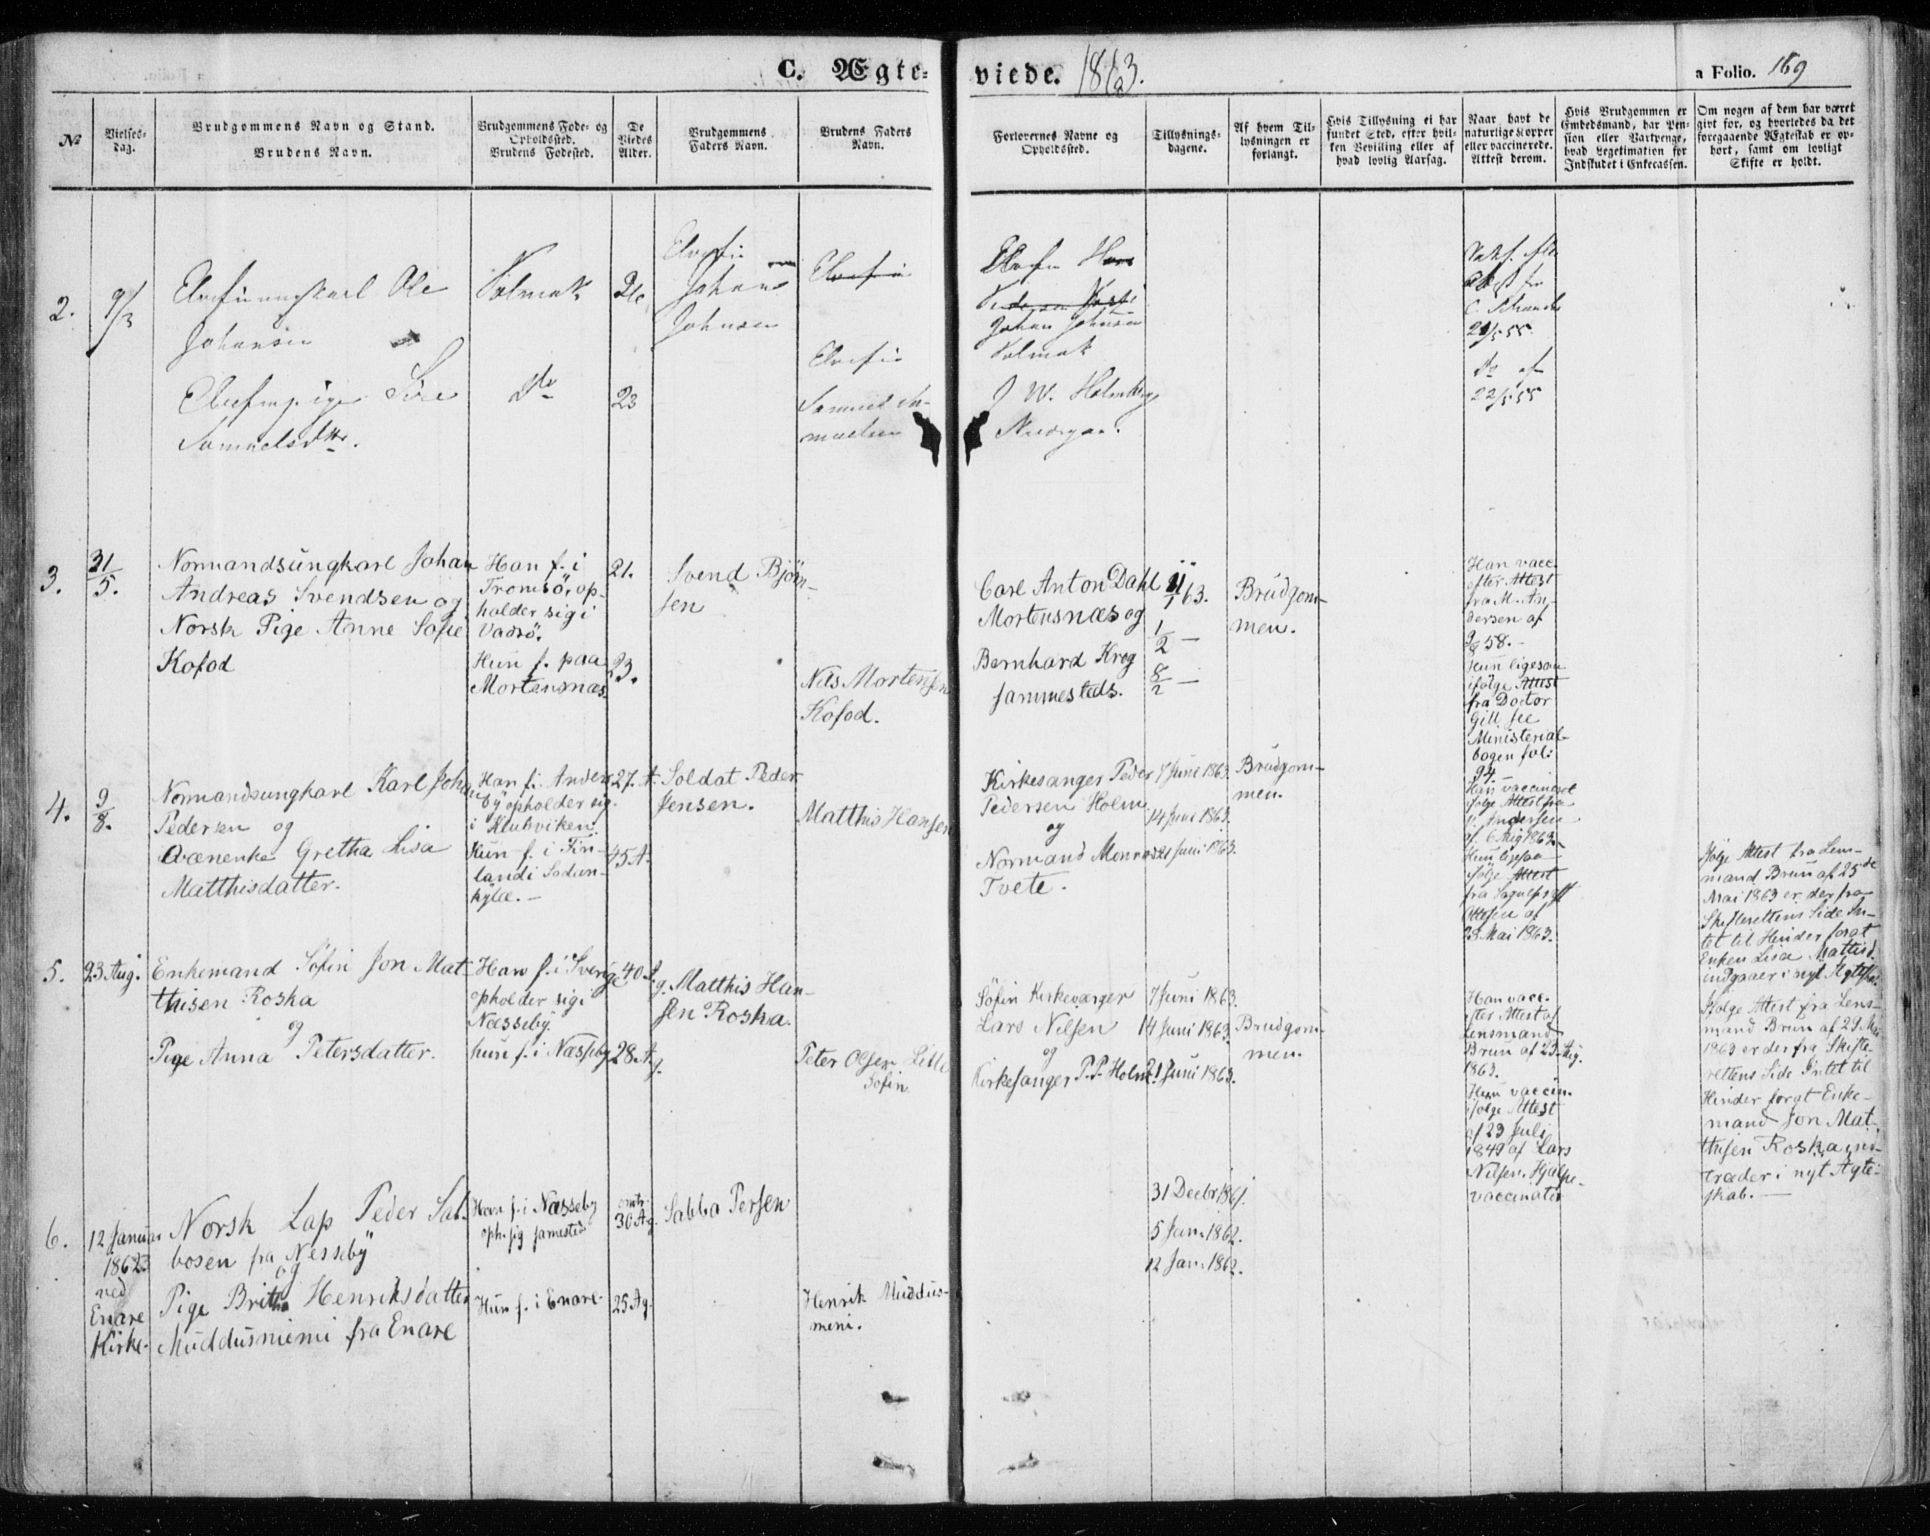 C. Ægteviede. 1863.
a Folio. 169
No
Vielsesdag.
Brudgommens Navn og Stand.
Brudens Navn.
Brudgommens Føde- og
Opholdssted.
Brudens Fødested.
De
Viedes
Alder.
Brudgommens
Faders Navn.
Brudens Faders
Navn.
Forlovernes Navne og
Opholdssted.
Tillysnings-
dagene.
Af hvem Til-
lysningen er
forlangt.
Hvis Tillysning ei har
fundet Sted, efter hvil-
ken Bevilling eller af
hvad lovlig Aarsag.
Naar havt de
naturlige Kopper
eller vaccinerede.
Attest derom.
Hvis Brudgommen er
Embedsmand, har Pen-
sion eller Vartpenge,
hvad Legetimation for
Indskudet i Enkecassen.
Om nogen af dem har været
gift før, og hvorledes da det
foregaaende Ægteskab er op-
hørt, samt om lovligt
Skifte er holdt.
2.
9/3
Elvefinungkarl Ole
Johansen
Elvefinpige Siri
Samuelsdtr.
Polmak
Do
26
23
Elvefin
Johan
Johnsen
Elvefin
Elvefin
Samuel Sa-
muelsen
Elvefin Hans
Pedersen
Johan Johnsen
Polmak
J. W. Holmberg
Attest fra
22/5 55
Do af
22/5 55
3.
31/5.
Normandsungkarl Johan
Andreas Svendsen og
Norsk Pige Anne Sofie
Kofod
Han f. i
Tromsö, op-
holder sig i
Vadsö.
Hun f. paa
Mortensnæs.
21.
23.
Svend Bjørn-
sen
Nils Mortensen
Kofod.
Carl Anton Dahl
Mortensnæs og
Bernhard Krog
sammesteds.
11/1 63.
1/2 —
8/2 —
Brudgom-
men.
Han vacc.
efter Attest
fra M. An-
dersen af
58.—
Hun ligesaa
ifølge Attest
fra Doctor
Gill see
Ministerial-
bogen fol:
94.
4.
9/8.
Normandsungkarl Karl Johan
Pedersen og
Qvænenke Gretha Lisa
Matthisdatter.
Han f. i Anders-
by opholder sig
i Klubviken.
Hun f. i Fin-
land i Sodan-
kylæ.—
27. A.
45 A.
Soldat Peder
Jensen.
Matthis Hansen
Kirkesanger Peder
Pedersen Holm
og
Normand Monrad
Tvete.
7 Juni 1863.
14 Juni 1863.
21 Juni 1863.
Brudgom-
men.
Han vaccineret
ifølge Attest fra
Andersen
af 6 Aug 1863.
Hun ligesaa
ifølge Attest
fra
af
28 Mai 1863.
Ifølge Attest fra Lens-
mand Brun af 25de
Mai 1863 er der fra
Skifterettens Side In-
tet til Hinder forat
Enken Lisa Mattisd.
indgaaer i nyt Ægtesk.
5.
23 Aug.
Enkemand Søfin Jon Mat-
thisen Roska
og
Pige Anna Petersdatter.
Han f. i Sverige
opholder sig i
Næsseby.
hun f. i Næsseby
40 Ag.
28 Ag.
Matthis Han-
sen Roska.
Peter Olsen Lille
Søfin
Søfin Kirkeværger
Lars Nilsen
og
Kirkesanger P. P. Holm.
7 Juni 1863.
14 Juni 1863.
21 Juni 1863.
Brudgom-
men.
Han vacc.
efter Attest af
Lensmand
Brun af 23 Aug.
1863.
Hun vaccin.
ifølge Attest
af 23 Juli
1849 af Lars
Nilsen, Hjælpe-
vaccinatør
Ifølge Attest fra Lens-
mand Brun af 29 Mai
1863 er der fra Skifte-
rettens Side Intet til
Hinder forat Enke-
mand Jon Mat-
thisen Roska ind-
træder i nyt Ægte-
skab.—
6.
12 Januar
1863
ved
Enare
Kirke.
Norsk Lap Peder Sab-
bosen fra Nesseby
og
Pige Britha Henriksdatter
Muddusniemi fra Enare
Han f. i Næsseby
oph. sig samesteds
Hun f. i Enare
omtr.
30 Ag.
25 Ag.
Sabba Persen
Henrik Muddus-
meni.
31 Decbr 1861.
5 Jan. 1862.
12 Jan. 1862.